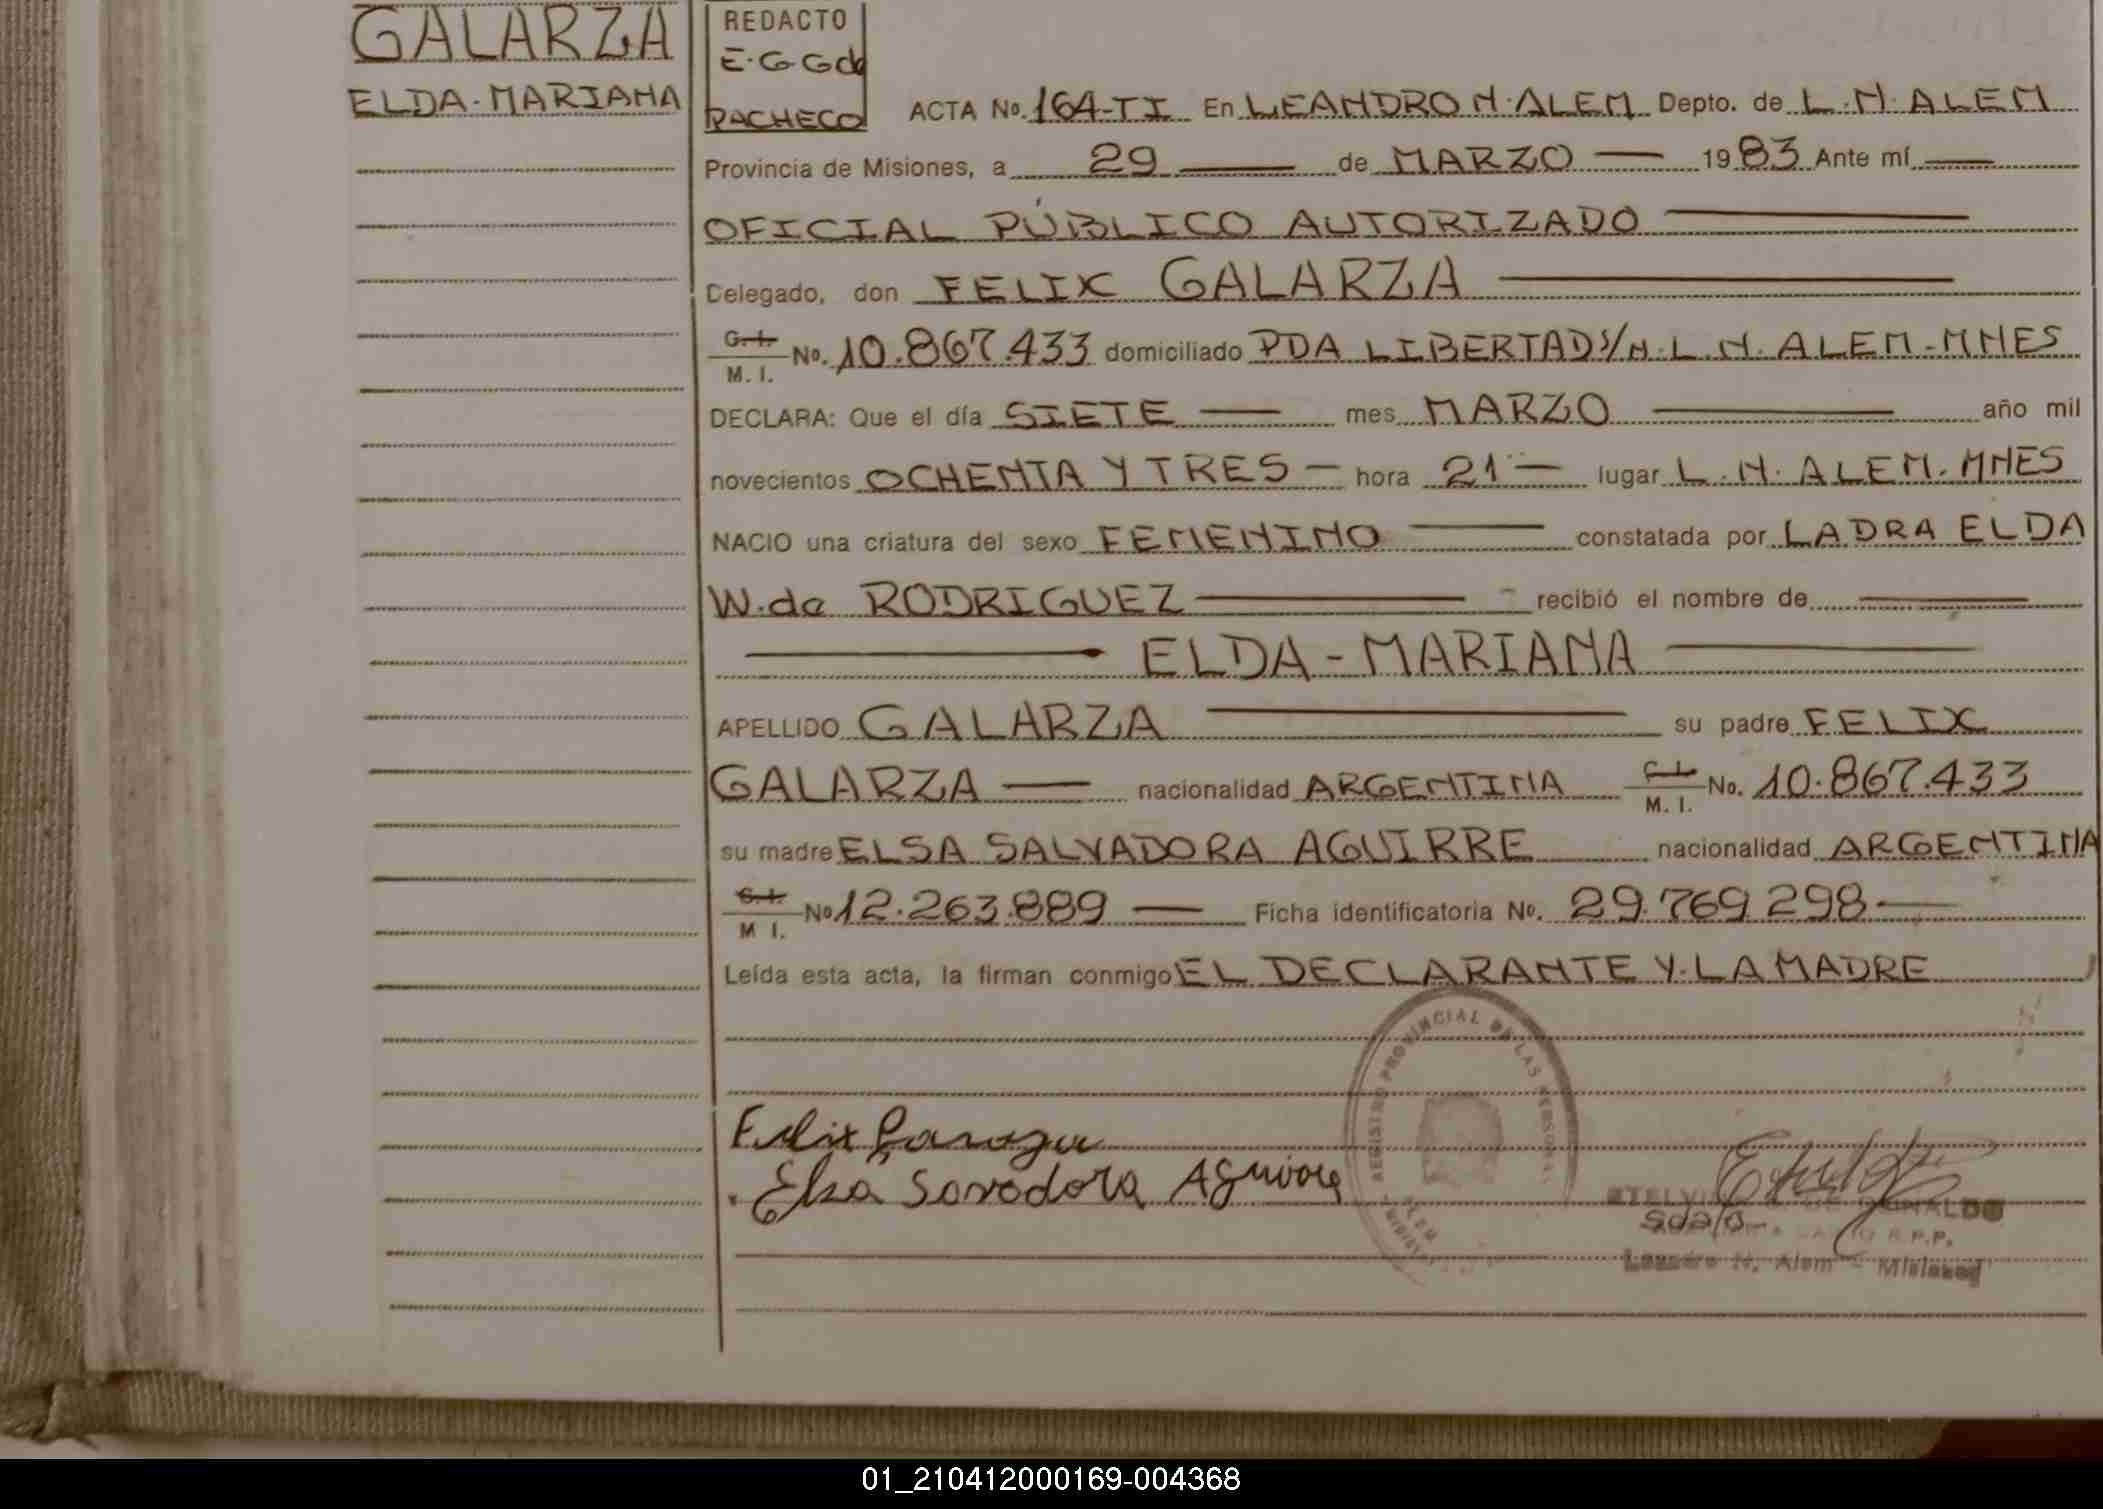 GALARZA
ELDA-MARIANA
REDACTO
E.G.Gde
PACHECO
ACTA No. 164-TI En LEANDRO N. ALEM Depto. de L.N. ALEM
Provincia de Misiones, a 29 de MARZO 1983 Ante mí
OFICIAL PÚBLICO AUTORIZADO
Delegado, don FELIX GALARZA
C.I. M.I. No. 10.867.433 domiciliado PDA LIBERTAD S/N. L.N. ALEM-MNES
DECLARA: Que el día SIETE mes MARZO año mil
novecientos OCHENTA Y TRES hora 21 lugar L.N. ALEM. MNES
NACIO una criatura del sexo FEMENINO constatada por LADRA ELDA
W. de RODRIGUEZ recibió el nombre de
ELDA-MARIANA
APELLIDO GALARZA su padre FELIX
GALARZA nacionalidad ARGENTINA C.I. M.I. No. 10.867.433
su madre ELSA SALVADORA AGUIRRE nacionalidad ARGENTINA
C.I. M I. No 12.263.889 Ficha identificatoria No. 29.769.298
Leída esta acta, la firman conmigo EL DECLARANTE Y LA MADRE
REGISTRO PROVINCIAL DE LAS PERSONAS
ALEM
Felix Garaza
Elsa Savadora Aguirre
Leandro N. Alem - Misiones
01_210412000169-004368